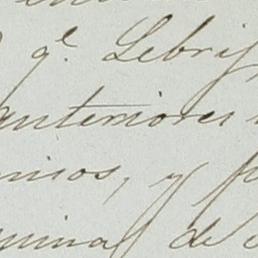 qe. Lebrij
anteriores
nisos, y p
minas de